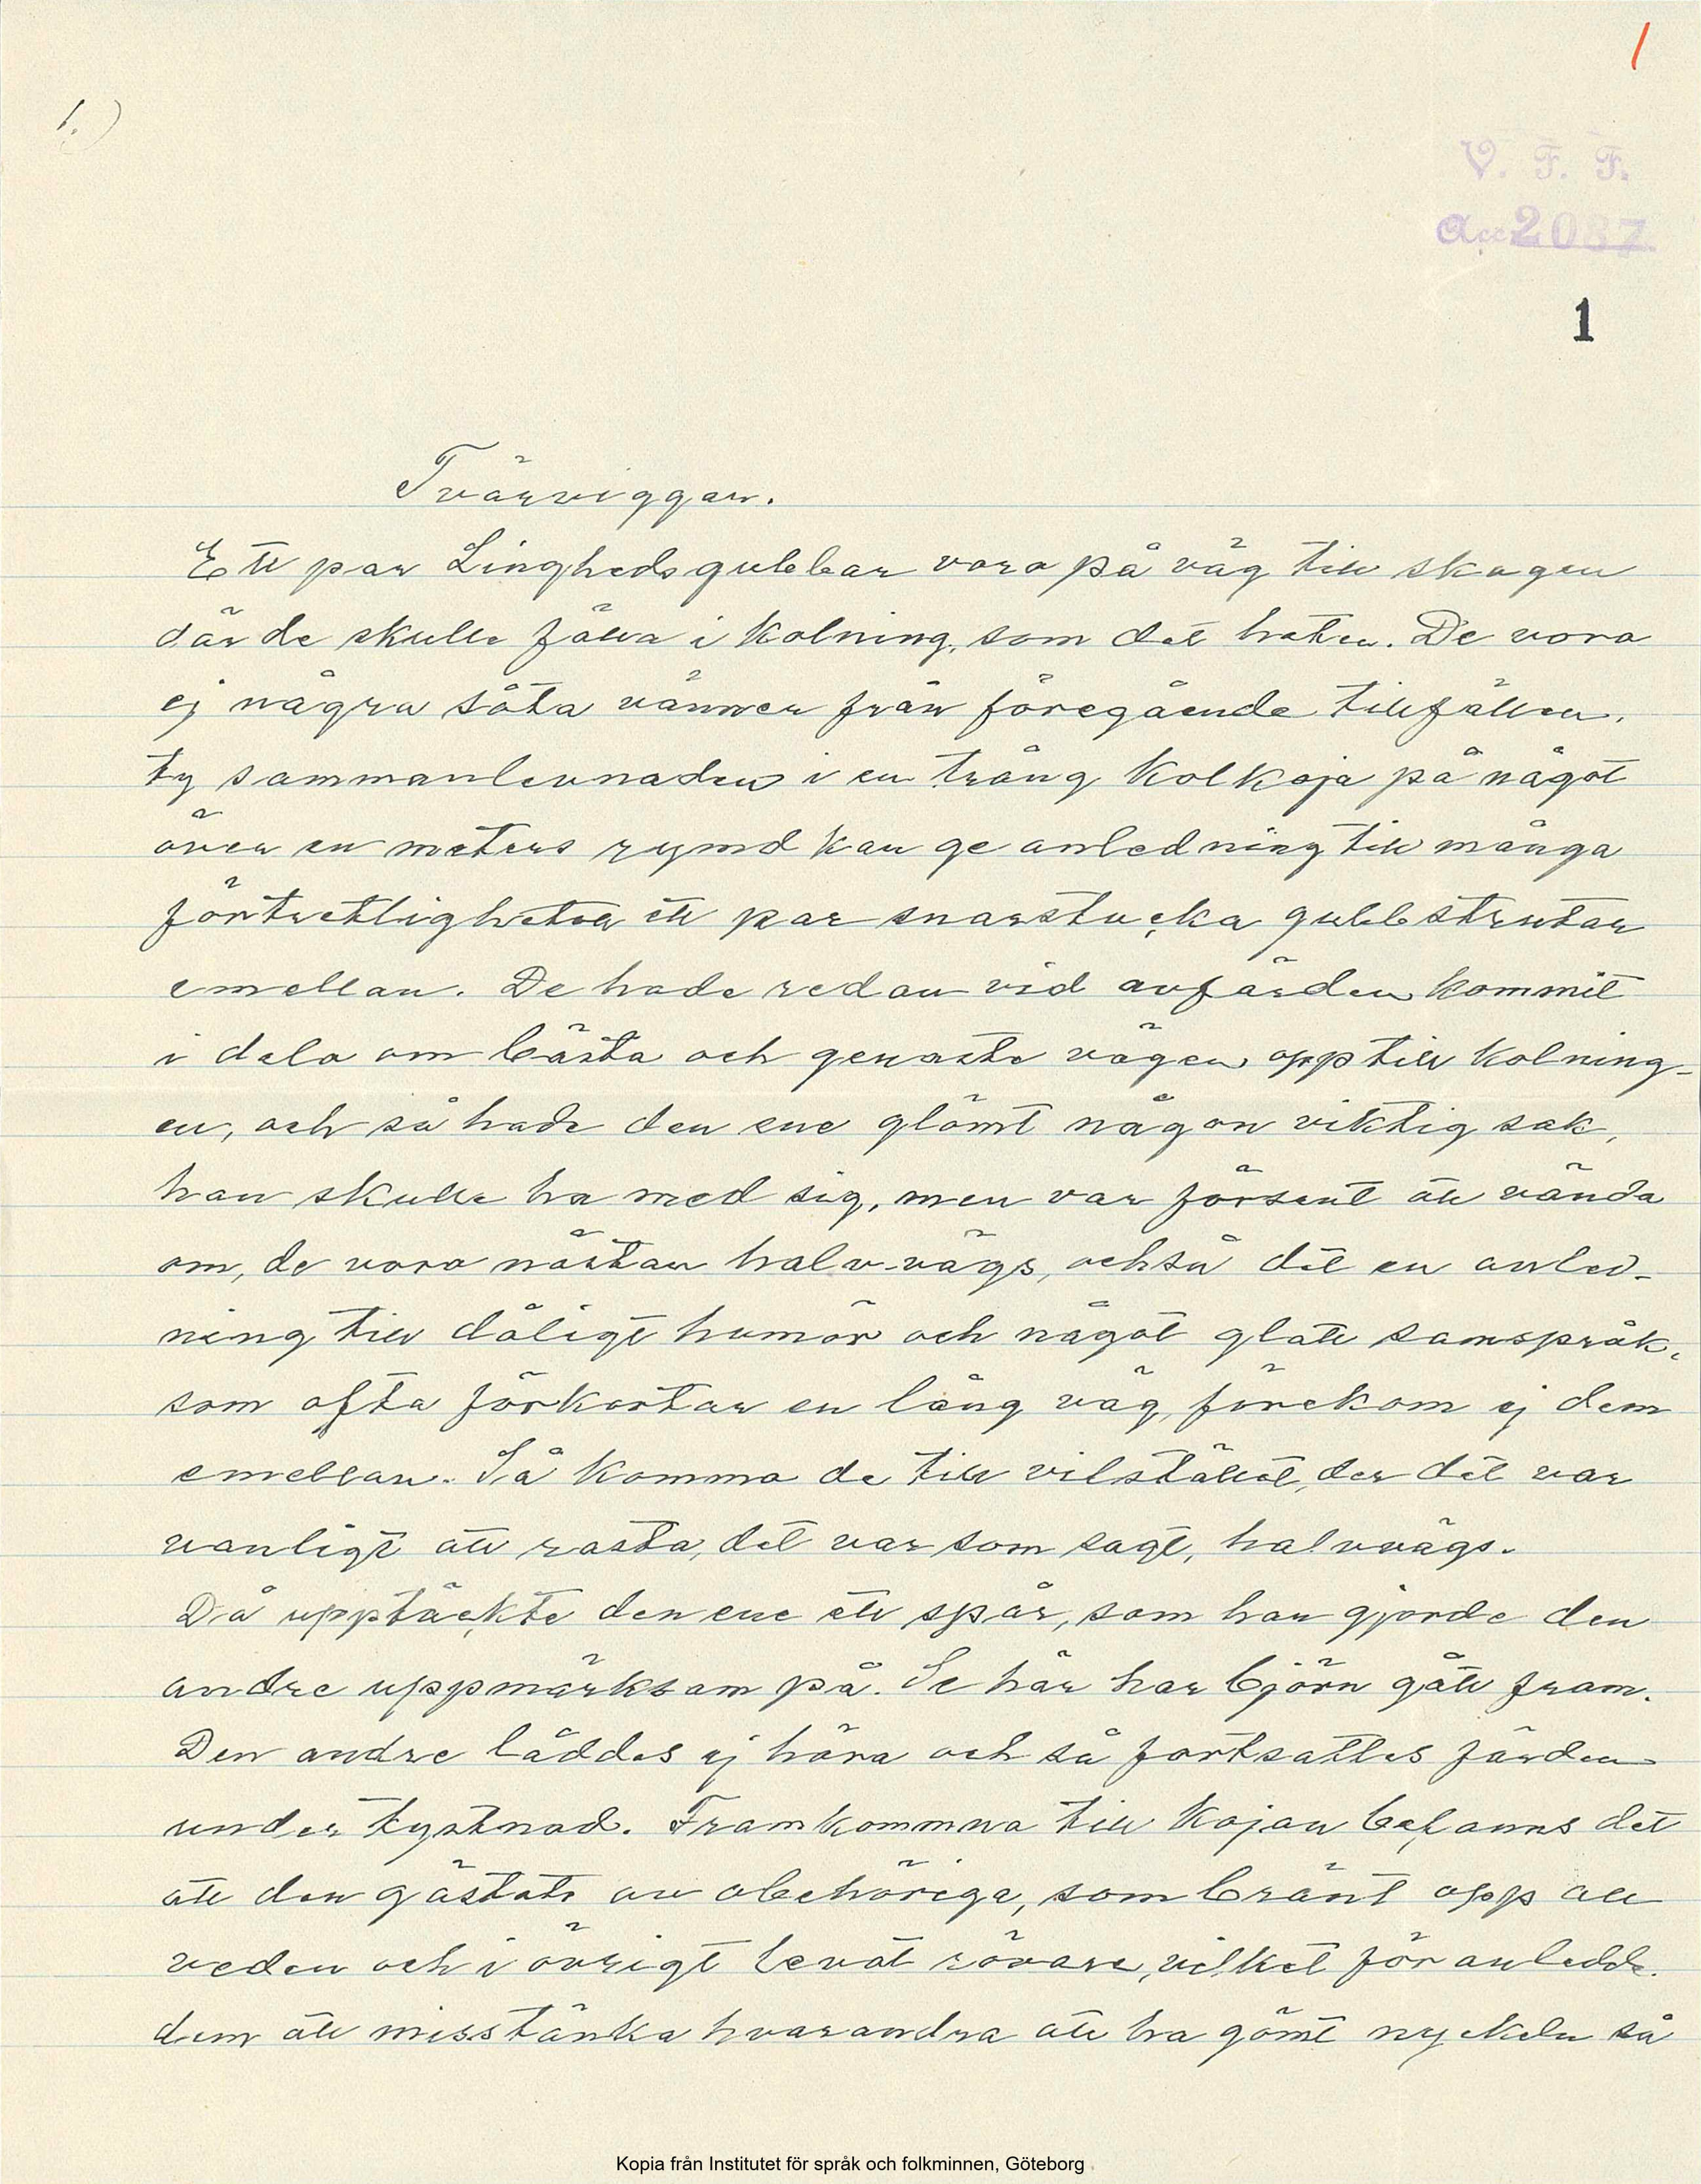 1
1.)
V. F. F.
Acc 2087
1
Tvärviggar.
Ett par Linghedsgubbar voro på väg till skogen
där de skulle fälla i kolning, som det heter. De voro
ej några såta vänner från föregående tillfällen,
ty sammanlevnaden i en trång kolkoja på något
över en meters rymd kan ge anledning till många
förtretligheter ett par snarstucka gubbstrutar
emellan. De hade redan vid avfärden kommit
i delo om bästa och genaste vägen opp till kolning-
en, och så hade den ene glömt någon viktig sak,
han skulle ha med sig, men var försent att vända
om, de voro nästan halv-vägs, också det en anled-
ning till dåligt humör och något glatt samspråk,
som ofta förkortar en lång väg, förekom ej dem
emellan. Så komma de till vilstället, der det var
vanligt att rasta, det var som sagt, halvvägs.
Då upptäckte den ene ett spår, som han gjorde den
andre uppmärksam på. Se här har björn gått fram.
Den andre låddes ej höra och så fortsattes färden
under tystnad. Framkommna till kojan befanns det
att den gästats av obehöriga, som bränt opp all
veden och i övrigt levat rövare, vilket föranledde
dem att misstänka hvarandra att ha gömt nyckeln så
Kopia från Institutet för språk och folkminnen, Göteborg